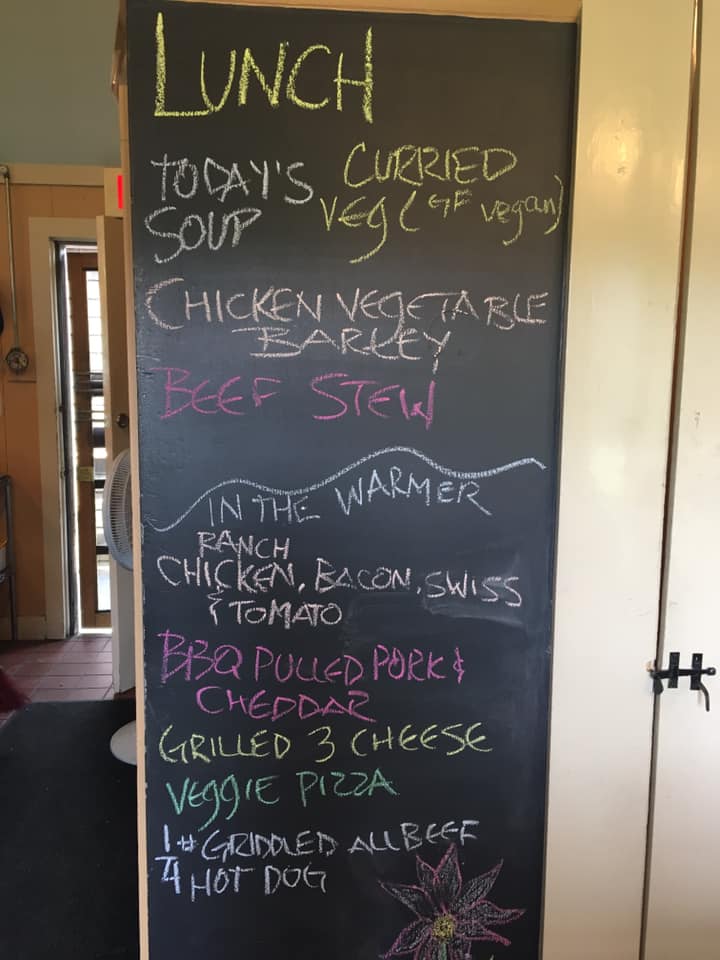 LUNCH
TODAY'S SOUP
CURRIED VEG (GF vegan)
CHICKEN VEGETABLE
BARLEY
BEEF STEW
IN THE WARMER
RANCH
CHICKEN, BACON, SWISS
& TOMATO
BBQ PULLED PORK &
CHEDDAR
GRILLED 3 CHEESE
VEGGIE PIZZA
1/4 # GRIDDLED ALL BEEF
HOT DOG